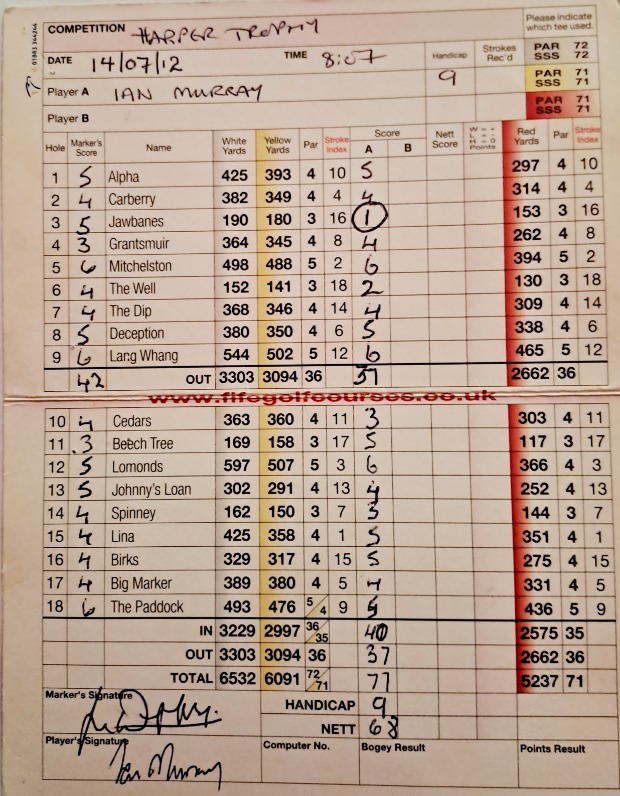 01883 344244
COMPETITION HARPER TROPHY
Please indicate which tee used.
DATE 14/07/12 TIME 8:07 Handicap Strokes Rec'd PAR 72 SSS 72
Player A IAN MURRAY 9 PAR 71 SSS 71
Player B PAR 71 SSS 71
Hole Marker's Score Name White Yards Yellow Yards Par Stroke Index Score A B Nett Score W = + L = - H = O Points Red Yards Par Stroke Index
1 5 Alpha 425 393 4 10 5 297 4 10
2 4 Carberry 382 349 4 4 4 314 4 4
3 5 Jawbanes 190 180 3 16 1 153 3 16
4 3 Grantsmuir 364 345 4 8 4 262 4 8
5 6 Mitchelston 498 488 5 2 6 394 5 2
6 4 The Well 152 141 3 18 2 130 3 18
7 4 The Dip 368 346 4 14 4 309 4 14
8 5 Deception 380 350 4 6 5 338 4 6
9 6 Lang Whang 544 502 5 12 6 465 5 12
42 OUT 3303 3094 36 37 2662 36
www.fifegolfcourses.co.uk
10 4 Cedars 363 360 4 11 3 303 4 11
11 3 Beech Tree 169 158 3 17 5 117 3 17
12 5 Lomonds 597 507 5 3 6 366 4 3
13 5 Johnny's Loan 302 291 4 13 4 252 4 13
14 4 Spinney 162 150 3 7 3 144 3 7
15 4 Lina 425 358 4 1 5 351 4 1
16 4 Birks 329 317 4 15 5 275 4 15
17 4 Big Marker 389 380 4 5 4 331 4 5
18 6 The Paddock 493 476 5/4 9 5 436 5 9
IN 3229 2997 36/35 40 2575 35
OUT 3303 3094 36 37 2662 36
TOTAL 6532 6091 72/71 77 5237 71
Marker's Signature HANDICAP 9
NETT 68
Player's Signature Ian Murray Computer No. Bogey Result Points Result